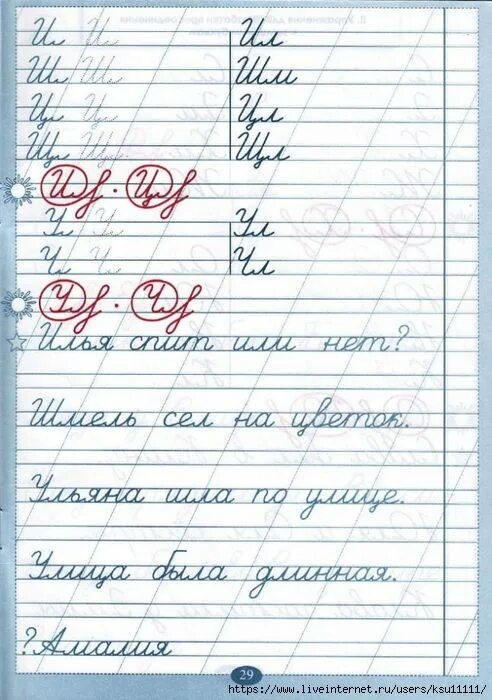 Ил Ил Ил
Шл Шл Шл
Цл Цл Цл
Щл Щл Щл
Ил · Цл
Ул Ул Ул
Чл Чл Чл
Ул · Чл
Илья спит или нет?
Шмель сел на цветок.
Ульяна шла по улице.
Улица была длинная.
?Амалия
29
https://www.liveinternet.ru/users/ksu11111/